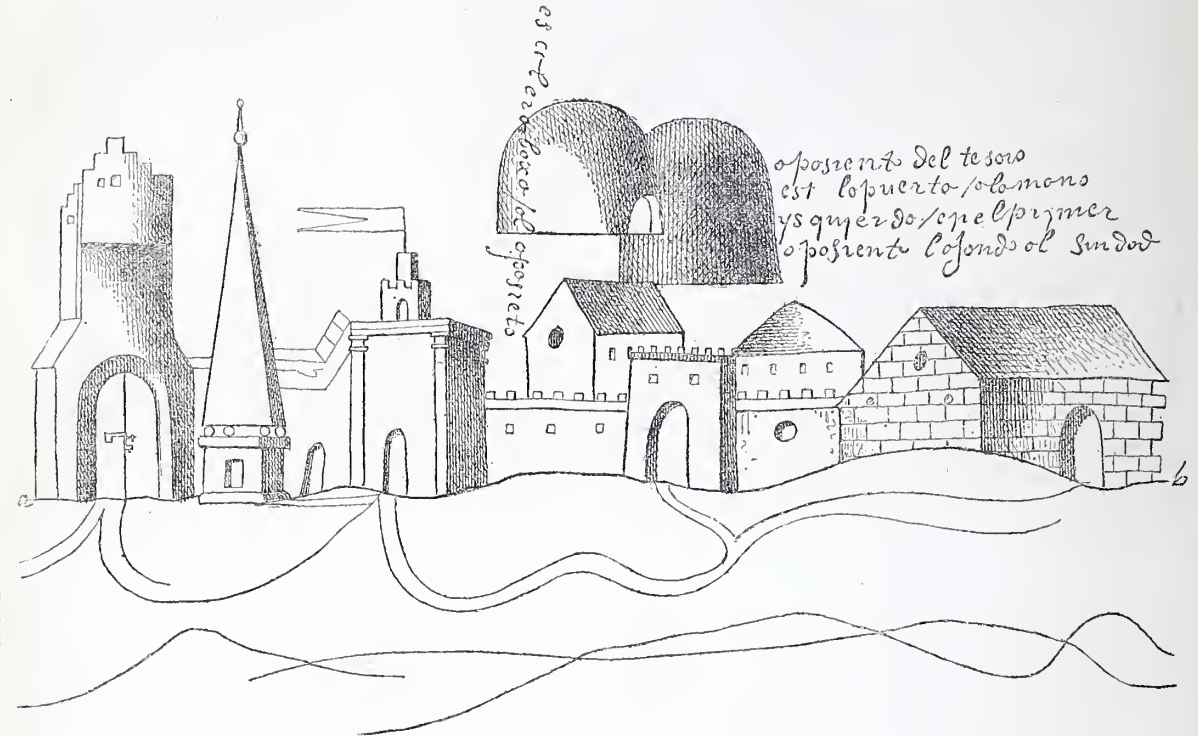 es ctero boxo del oposieto
oposient del tesoro
est lopuerto /olomono
ysquierdo /en el prymer
oposient lofondo ol
a
b